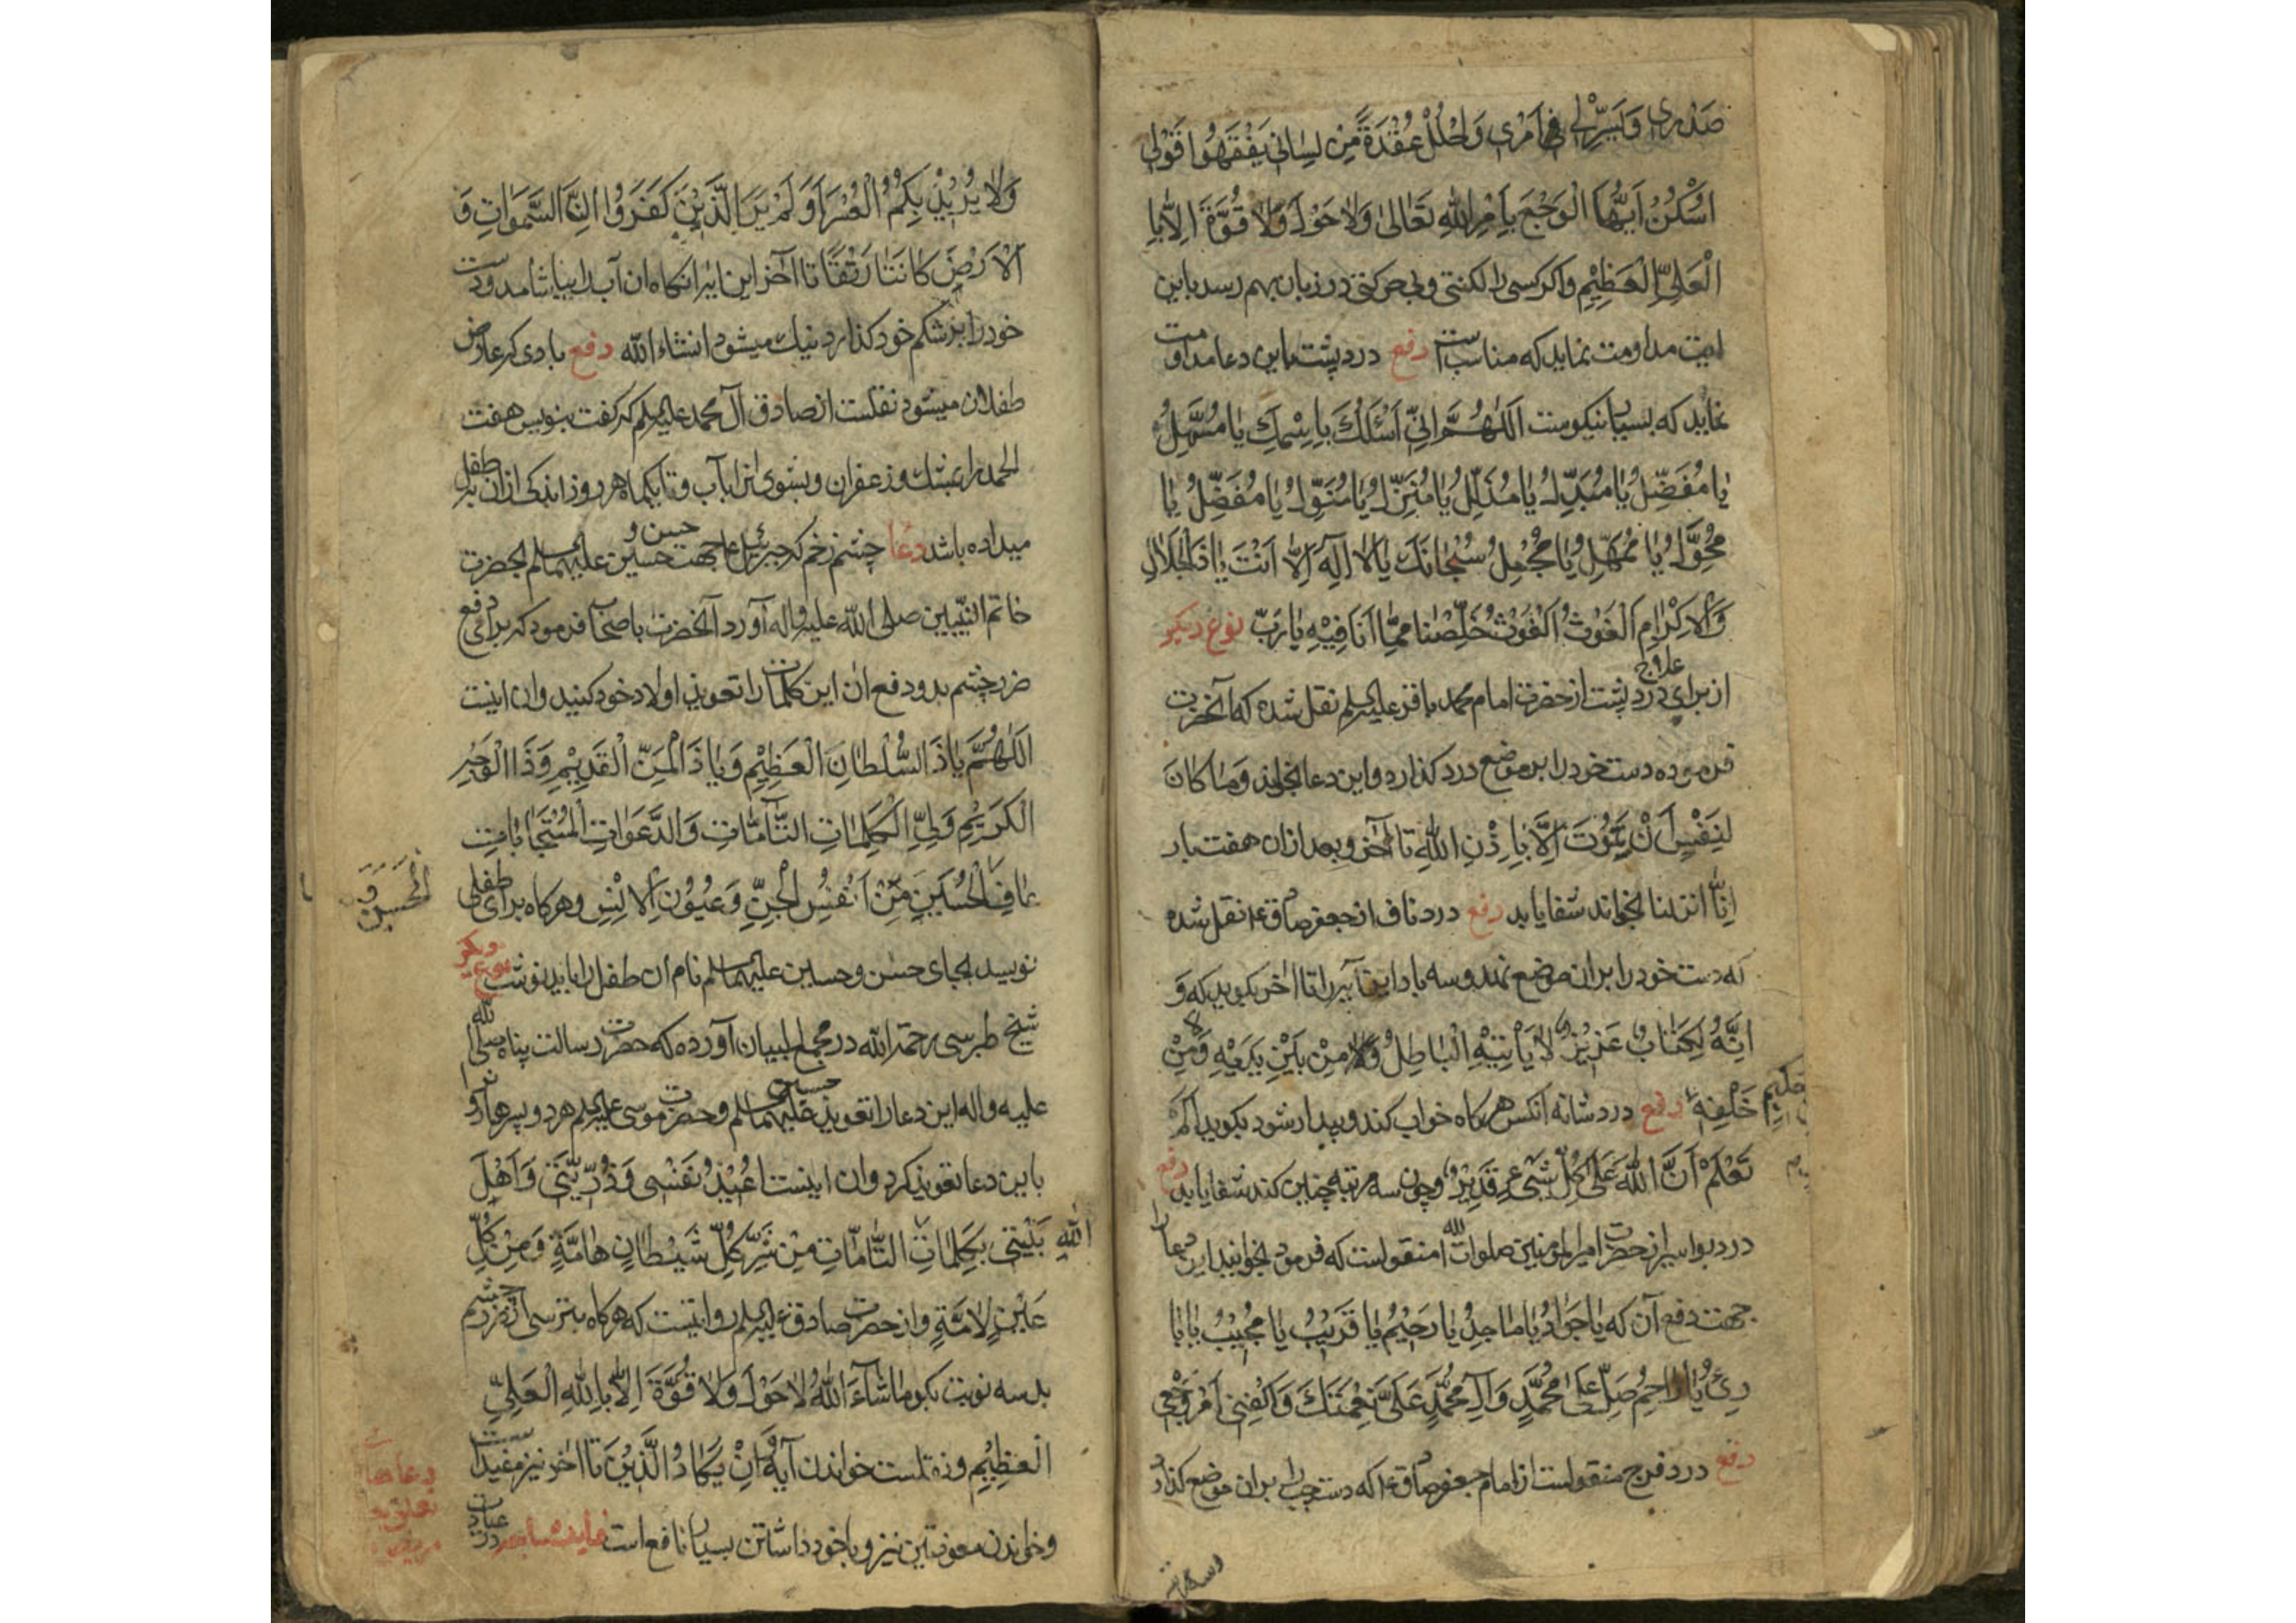 صَدْری وَیَسِّرْلی فی اَمْری وَاحْلُلْ عُقْدَةً مِنْ لِسٰانی یَفْقَهُوا قَوْلی
اُسْکُنْ اَیُّهَا الْوَجَعُ بِاَمْرِ اللهِ تَعٰالیٰ وَلاٰ حَوْلَ وَلاٰ قُوَّةَ اِلاّٰ بِا
الْعَلِیِّ الْعَظِیْمِ واکر کسی را لکنتی وبی حرکتی در زبان بهم رسد باین
ایت مداومت نماید که مناسب است رفع درد پشت باین دعا مداومت
نماید که بسیار نیکوست اَللّٰهُمَّ اِنِّی اَسْئَلُکَ بِاِسْمِکَ یٰا مُسَهِّلُ
یٰا مُفَضِّلُ یٰا مُبَدِّلُ یٰا مُذَلِّلُ یٰا مُنَزِّلُ یٰا مُنَوِّلُ یٰا مُفَضِّلُ یٰا
مُحَوِّلُ یٰا مُمَهِّلُ یٰا مُجْمِلُ سُبْحٰانَکَ یٰا لاٰ اِلٰهَ اِلاّٰ اَنْتَ یٰا ذَا الْجَلاٰلِ
وَالْاِکْرٰامِ اَلْغَوْثُ اَلْغَوْثُ خَلِّصْنٰا مِمّٰا اَنَا فِیْهِ یٰا رَبِّ نوع دیکر
از برای علاج درد پشت از حضرت امام محمد باقر علیه السلم نقل شده که آنحضرت
فرموده دست خود را بر موضع درد کذارد و این دعا بخواند وَمٰا کٰانَ
لِنَفْسٍ اَنْ تَمُوْتَ اِلاّٰ بِاِذْنِ اللهِ تا آخر و بعد از ان هفت بار
اِنّٰا انزلنا بخواند شفا یابد رفع درد ناف از جعفر صادق ع نقل شده
که دست خود را بر ان موضع نهد و سه بار این آیه را تا آخر بکوید که وَ
اِنَّهُ لَکِتٰابٌ عَزِیْزٌ لاٰ یَأْتِیْهِ الْبٰاطِلُ مِنْ بَیْنِ یَدَیْهِ وَلاٰ مِنْ
خَلْفِهِ رفع درد شانه انکس هر کاه خواب کند و بیدار شود بکوید اَلَمْ
تَعْلَمْ اَنَّ اللهَ عَلیٰ کُلِّ شَیْءٍ قَدِیْرٌ و چون سه مرتبه چنین کند شفا یابد رفع
درد بواسیر از حضرت امیر المومنین صلوات الله منقولست که فرمود بخوانید این دعا را
جهت دفع آن که یٰا جَوٰادُ یٰا مٰاجِدُ یٰا رَحِیْمُ یٰا قَرِیْبُ یٰا مُجِیْبُ یٰا بٰا
رِئُ یٰا رٰاحِمُ صَلِّ عَلیٰ مُحَمَّدٍ وَآلِ مُحَمَّدٍ عَلَیَّ نِعْمَتَکَ وَاکْفِنِی اَمْرَ وَجَعِی
رفع درد فرج منقولست از امام جعفر صادق ع که دست چپ را بر ان موضع کذارد
حکیم
وَلاٰ یُرِیْدُ بِکُمُ الْعُسْرَ اَوَلَمْ یَرَ الَّذِیْنَ کَفَرُوا اَنَّ السَّمٰوٰاتِ وَ
الْاَرْضَ کٰانَتٰا رَتْقًا تا آخر این آیه انکاه ان آب را بیاشامد و دست
خود را بر شکم خود کذارد نیک میشود انشاء الله رفع بادی که عارض
طفلان میشود نقلست از صادق آل محمد علیه السلم که کفت بنویس هفت
الحمد را بمشک و زعفران و بشوی انرا بآب و تا یکماه هر روز اندکی از ان به طفل
میداده باشد دعا چشم زخم که جبرئیل ع جهت حسن و حسین علیهما السلم بحضرت
خاتم النبیین صلی الله علیه واله آورد آنحضرت باصحاب فرمود که برای دفع
ضرر چشم بد و دفع ان این کلمات را تعویذ اولاد خود کنید وان اینست
اَللّٰهُمَّ یٰا ذَا السُّلْطٰانِ الْعَظِیْمِ وَیٰا ذَا الْمَنِّ الْقَدِیْمِ وَذَا الْوَجْهِ
الْکَرِیْمِ وَلِیَّ الْکَلِمٰاتِ التّٰآمّٰاتِ وَالدَّعَوٰاتِ الْمُسْتَجٰابٰاتِ
عٰافِ الْحُسَیْنَ مِنْ اَنْفُسِ الْجِنِّ وَعُیُوْنِ الْاِنْسِ وهر کاه برای طفلی
الْحَسَنَ وَ
نویسد بجای حسن و حسین علیهما السلم نام ان طفل را باید نوشت نوع دیکر
شیخ طبرسی رحمة الله در مجمع البیان آورده که حضرت رسالت پناه صلی الله
علیه واله این دعا را تعویذ حسنین علیهما السلم و حضرت موسی علیه السلم هر دو پسر هارون
باین دعا تعویذ کرد وان اینست اُعِیْذُ نَفْسِی وَذُرِّیَّتِی وَاَهْلَ
بَیْتِی بِکَلِمٰاتِ اللهِ التّٰامّٰاتِ مِنْ شَرِّ کُلِّ شَیْطٰانٍ هٰامَّةٍ وَمِنْ کُلِّ
عَیْنٍ لاٰمَّةٍ واز حضرت صادق علیه السلم روایتست که هر کاه بترسی از ضرر چشم
بد سه نوبت بکو مٰا شٰآءَ اللهُ لاٰ حَوْلَ وَلاٰ قُوَّةَ اِلاّٰ بِاللهِ الْعَلِیِّ
الْعَظِیْمِ و نقلست خواندن آیه وَاِنْ یَکٰادُ الَّذِیْنَ تا آخر نیز مفید است
وخواندن معوذتین نیز وبا خود داشتن بسیار نافع است